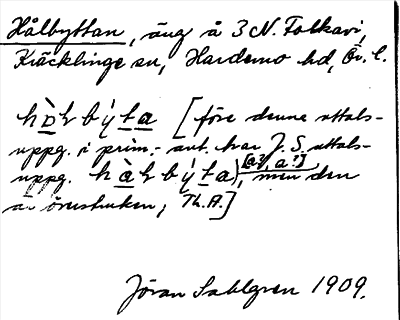 Hålbyttan, äng å 3 N. Folkavi,
Kräcklinge sn, Hardemo hd, Ör. l.
hò̱lbýt̲a̲ [före denne uttals-
uppg. i prim.-ant. har J. S. uttals-
[a?, a?]
uppg. hà̱lbýt̲a), men den
är överstruken, Th. A.]
Jöran Sahlgren 1909.